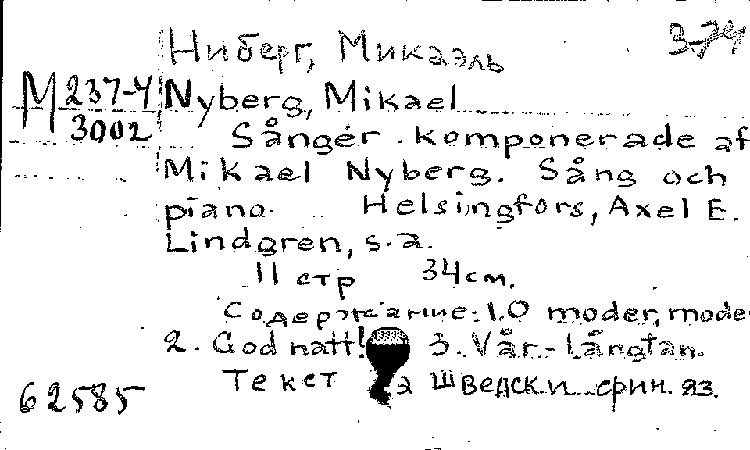 3-74
Ниберг, Микаэль
М 237-4
3002
Nyberg, Mikael
Sånger komponerade af
Mikael Nyberg. Sång och
piano. Helsingfors, Axel E.
Lindgren, s.a.
11 стр 34 см.
Содержание: 1. O moder, mode
2. God natt! 3. Vår-Långtan.
Текст на шведск. и фин. яз.
62585